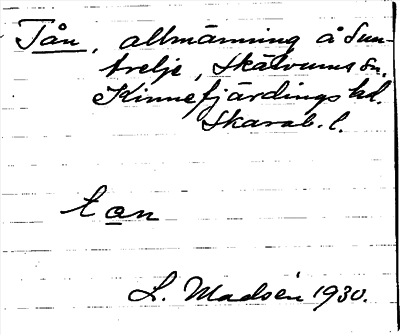 Tån, allmänning å Sun-
trelje, Skälvums sn.
Kinnefjärdings hd.
Skarab. l.
tan
L. Madsén 1930.